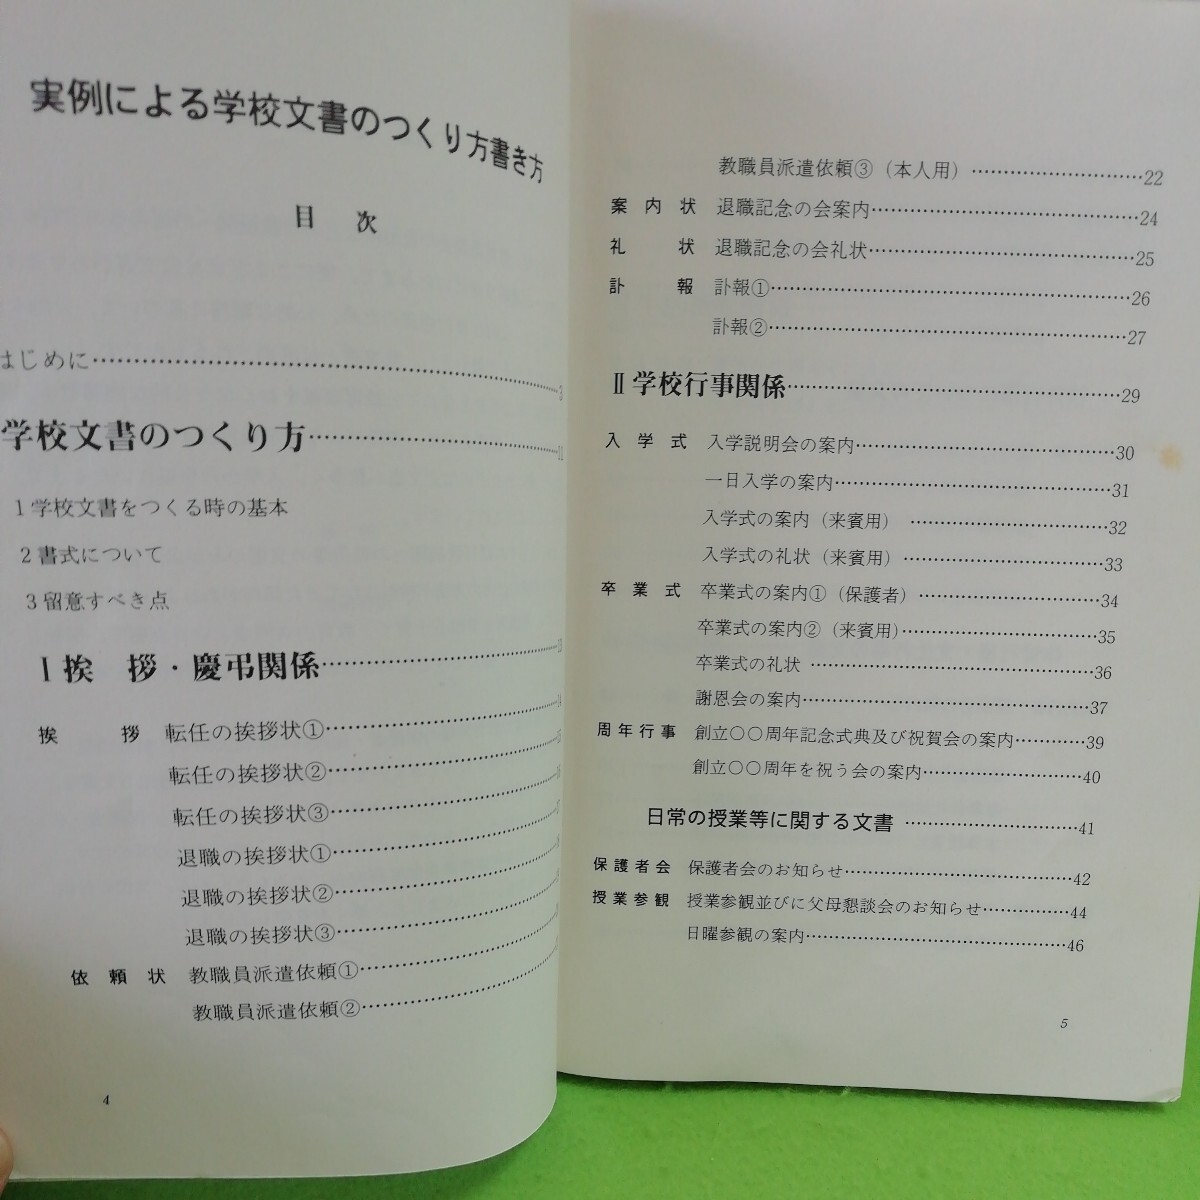 実例による学校文書のつくり方書き方
目 次
はじめに……………3
学校文書のつくり方……………11
1学校文書をつくる時の基本
2書式について
3留意すべき点
Ⅰ挨 拶・慶弔関係……………
挨 拶 転任の挨拶状①……………
転任の挨拶状②……………
転任の挨拶状③……………
退職の挨拶状①……………
退職の挨拶状②……………
退職の挨拶状③……………
依 頼 状 教職員派遣依頼①……………
教職員派遣依頼②……………
4
教職員派遣依頼③(本人用)……………22
案 内 状 退職記念の会案内……………24
礼 状 退職記念の会礼状……………25
訃 報 訃報①……………26
訃報②……………27
Ⅱ学校行事関係……………29
入 学 式 入学説明会の案内……………30
一日入学の案内……………31
入学式の案内(来賓用)……………32
入学式の礼状(来賓用)……………33
卒 業 式 卒業式の案内①(保護者)……………34
卒業式の案内②(来賓用)……………35
卒業式の礼状……………36
謝恩会の案内……………37
周年行事 創立〇〇周年記念式典及び祝賀会の案内…………39
創立〇〇周年を祝う会の案内……………40
日常の授業等に関する文書……………41
保護者会 保護者会のお知らせ……………42
授業参観 授業参観並びに父母懇談会のお知らせ…………44
日曜参観の案内……………46
5